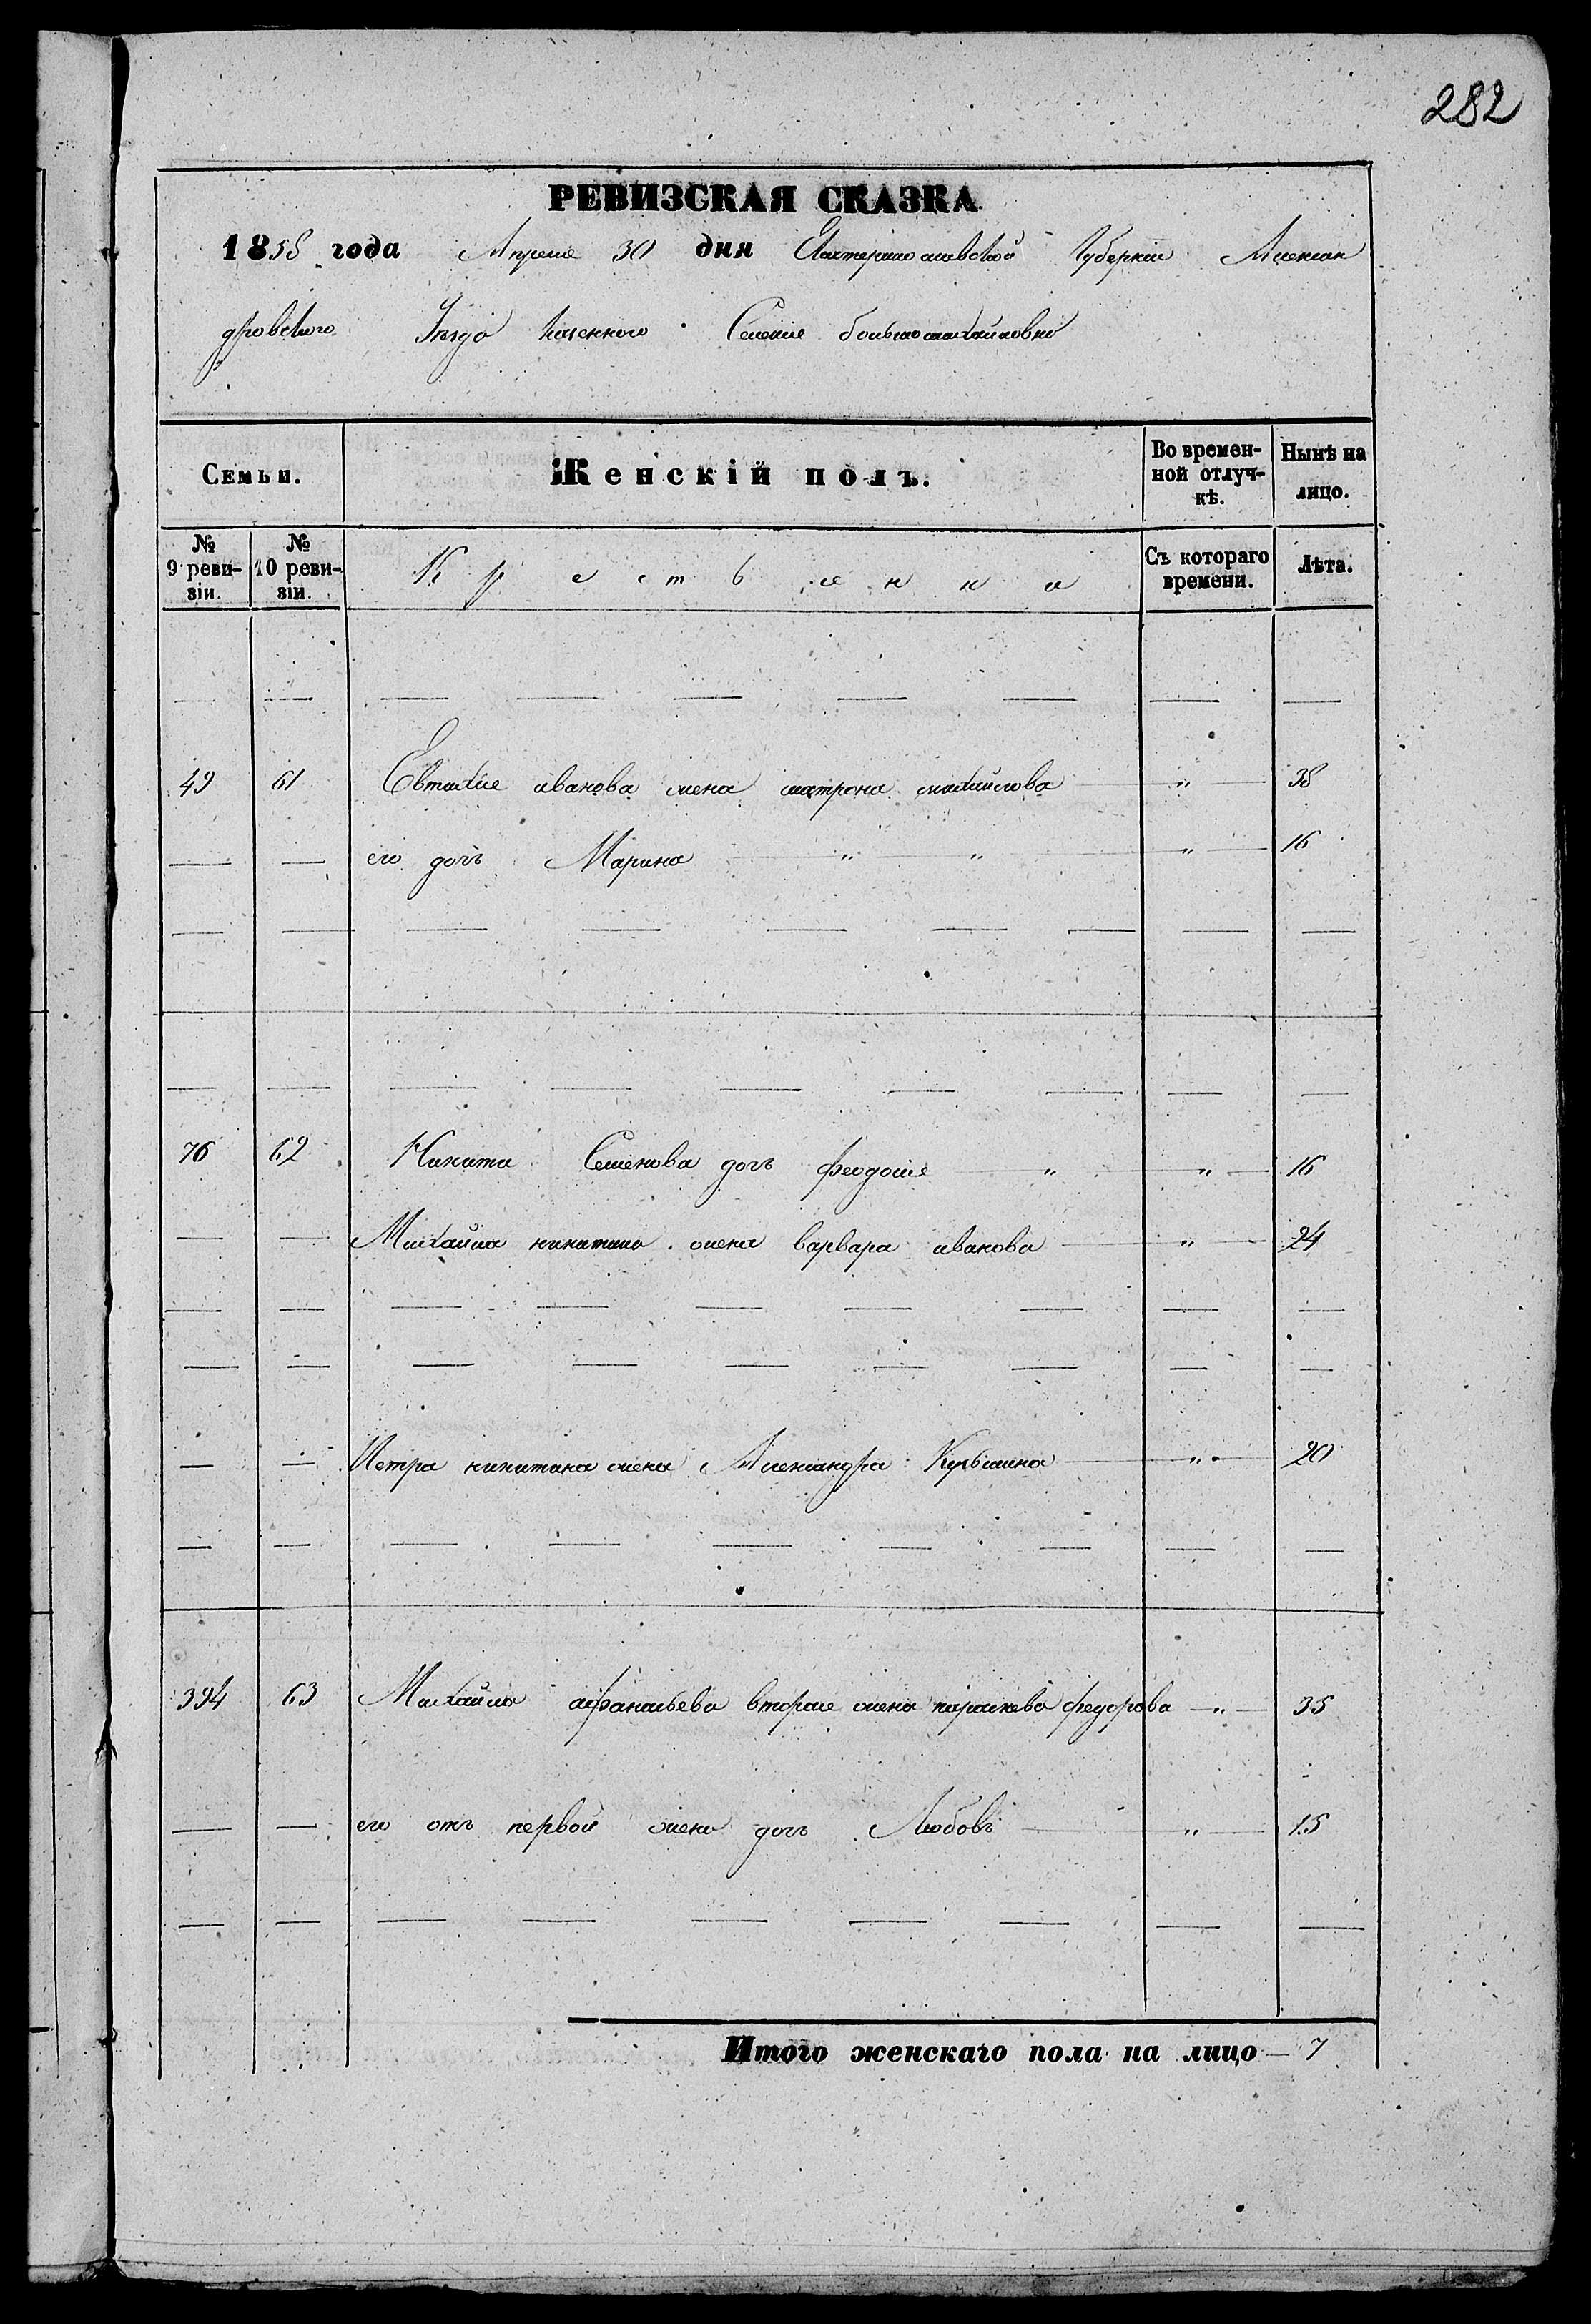 282
РЕВИЗСКАЯ СКАЗКА
1858 года Апреля 30 дня Екатеринославской Губернии Алексан
дровского Уезда казенного Селения больше михайловки
Семьи. Женскій полъ. Во времен-ной отлуч-кѣ. Нынѣ на лицо.
№ 9 реви-зіи. № 10 реви-зіи. Крестьянки Съ котораго времени. Лѣта.
49 61 Евтихия иванова жена матрона михайлова — „ — 38
— — его дочь Марина „ „ „ 16
76 62 Никиты Семенова дочь феодосия „ „ 16
— — Михайла никитина жена варвара иванова — „ — 24
— — Петра никитина жена Александра Кузьмина — „ — 20
394 63 Михайла афанасьева вторая жена параскева федорова — „ — 35
— — его отъ первой жены дочь Любовь — „ — 15
Итого женскаго пола на лицо — 7